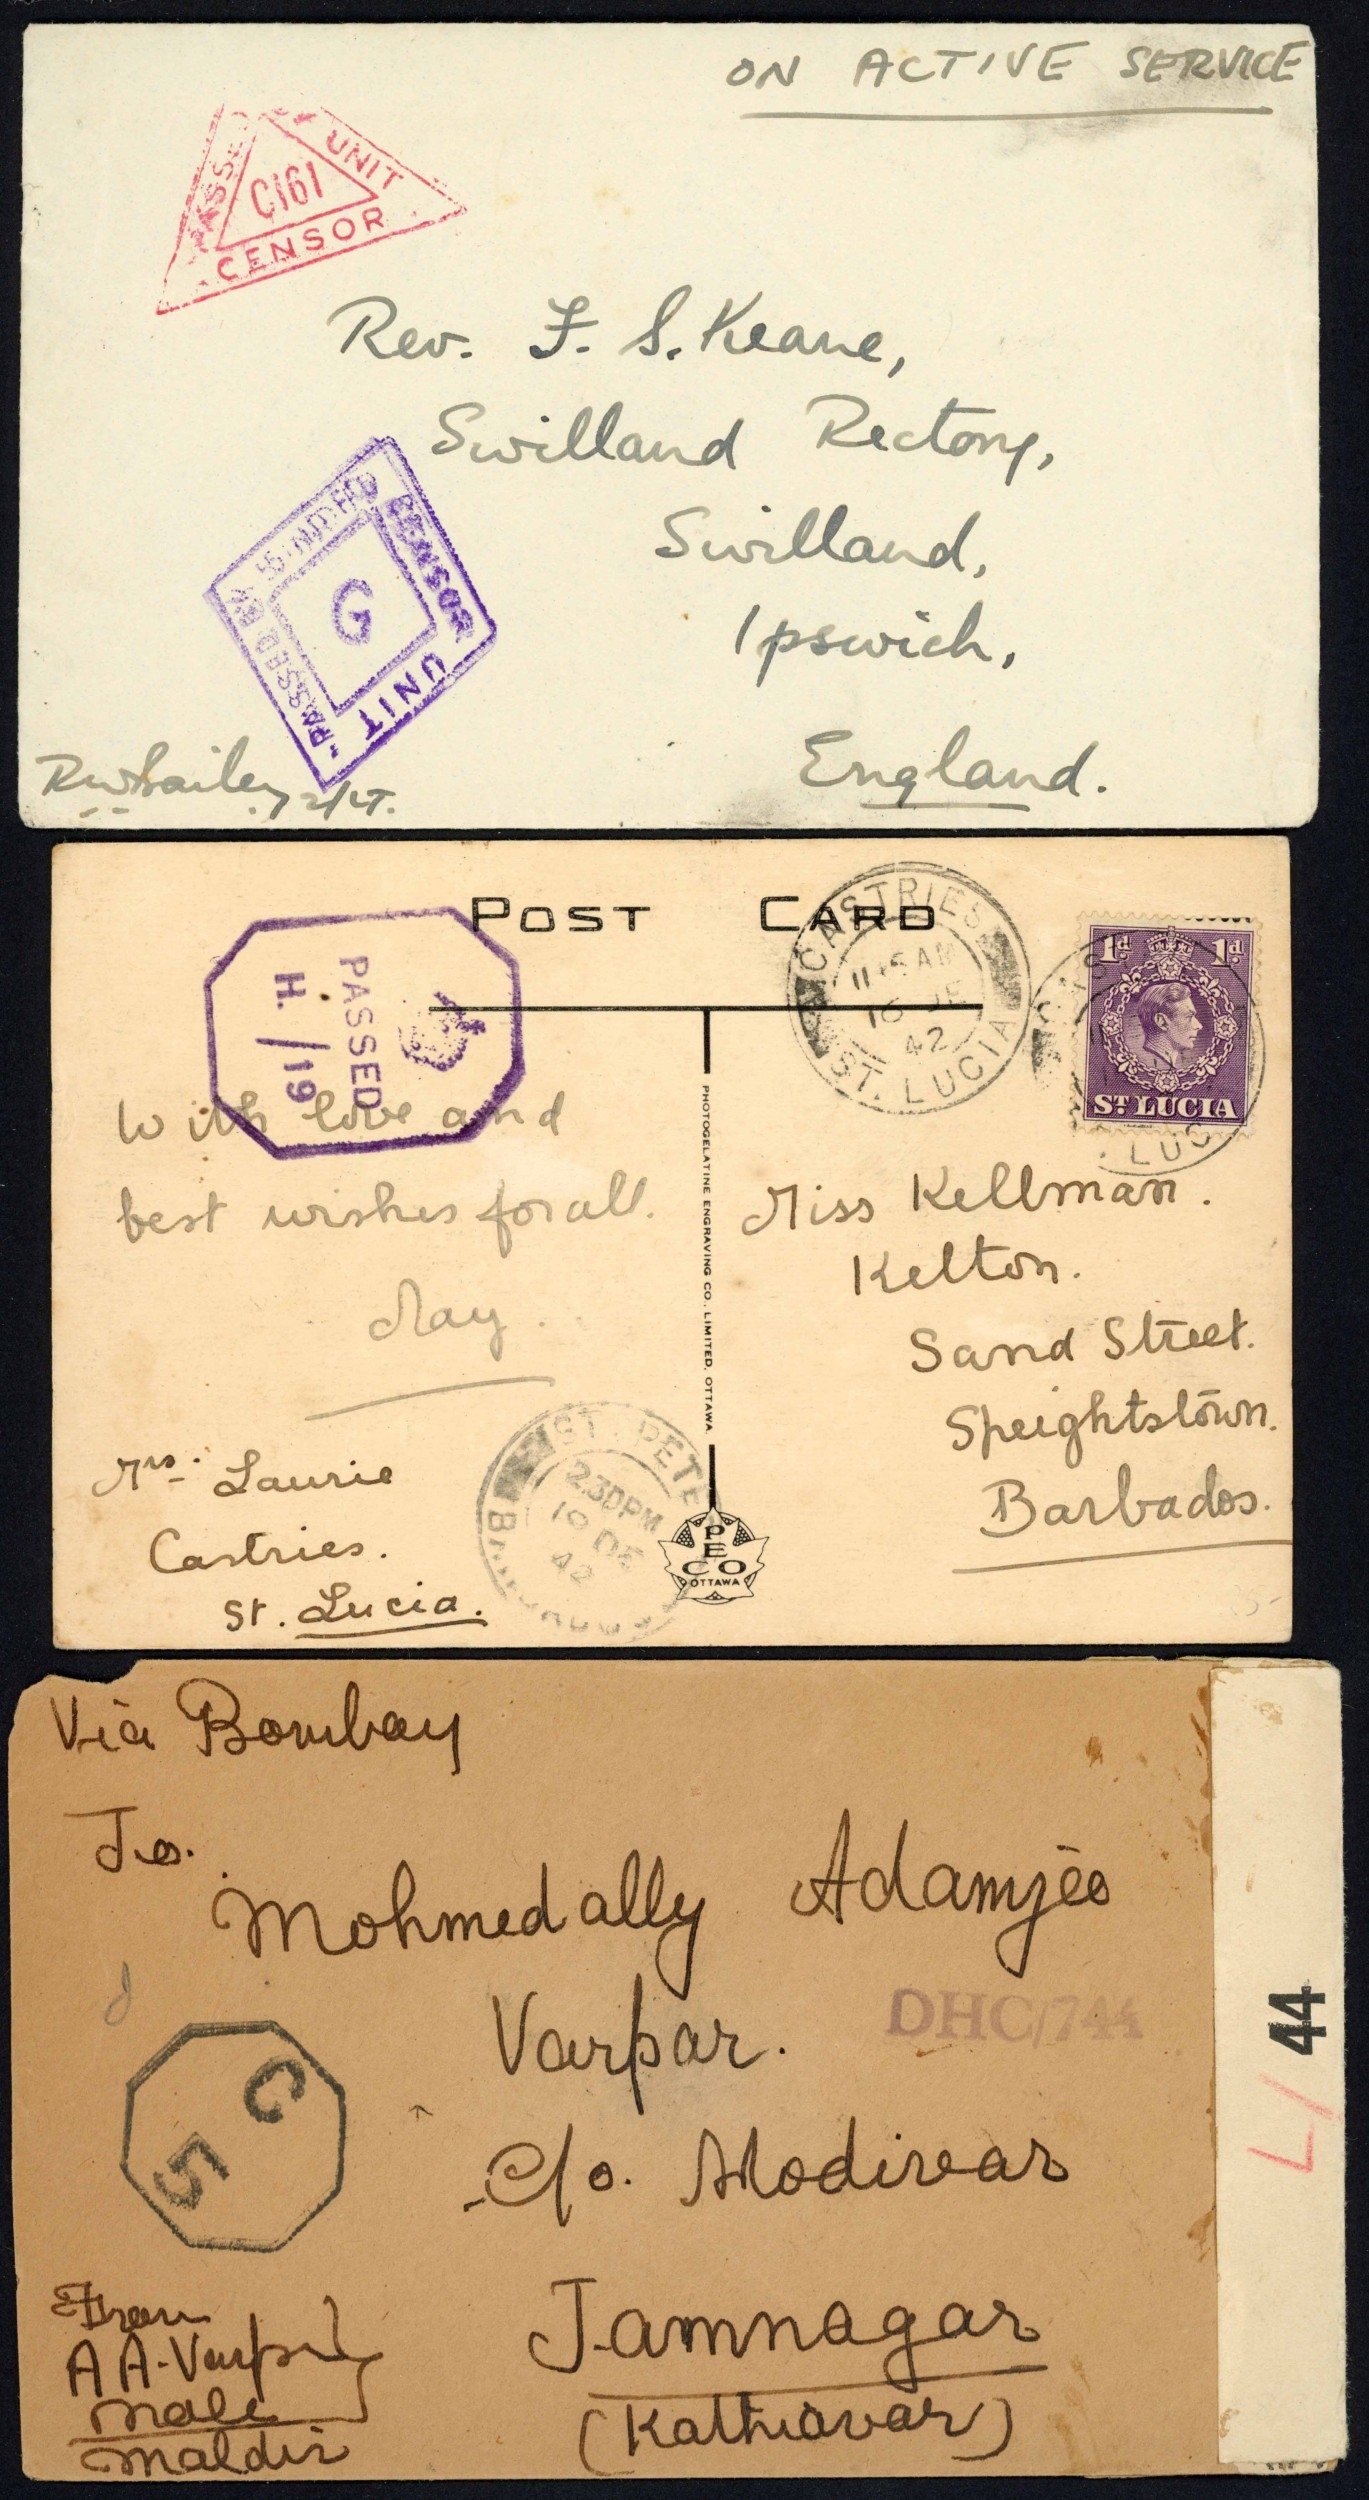 ON ACTIVE SERVICE
PASSED UNIT
C161
CENSOR
Rev. F. S. Keane,
Swilland Rectory,
Swilland,
Ipswich,
England.
CENSOR
G
PASSED
UNIT
2/LT.
POST CARD
CASTRIES
AM
42
ST. LUCIA
1d 1d
ST LUCIA
LUC
PASSED
H. /19
With love and
best wishes for all.
May.
PHOTOGELATINE ENGRAVING CO., LIMITED, OTTAWA
Miss Kellman.
Kelton.
Sand Street.
Speightstown.
Barbados.
Mrs. Laurie
Castries.
St. Lucia.
ST. PETE
2.30PM
19 DE
42
PECO
OTTAWA
Via Bombay
To.
Mohmedally Adamjee
Varpar.
DHC/744
C/o. Modivar
Jamnagar
(Kathiavar)
C
5
From
A A. Varpar
Male
Maldiv
L/ 44